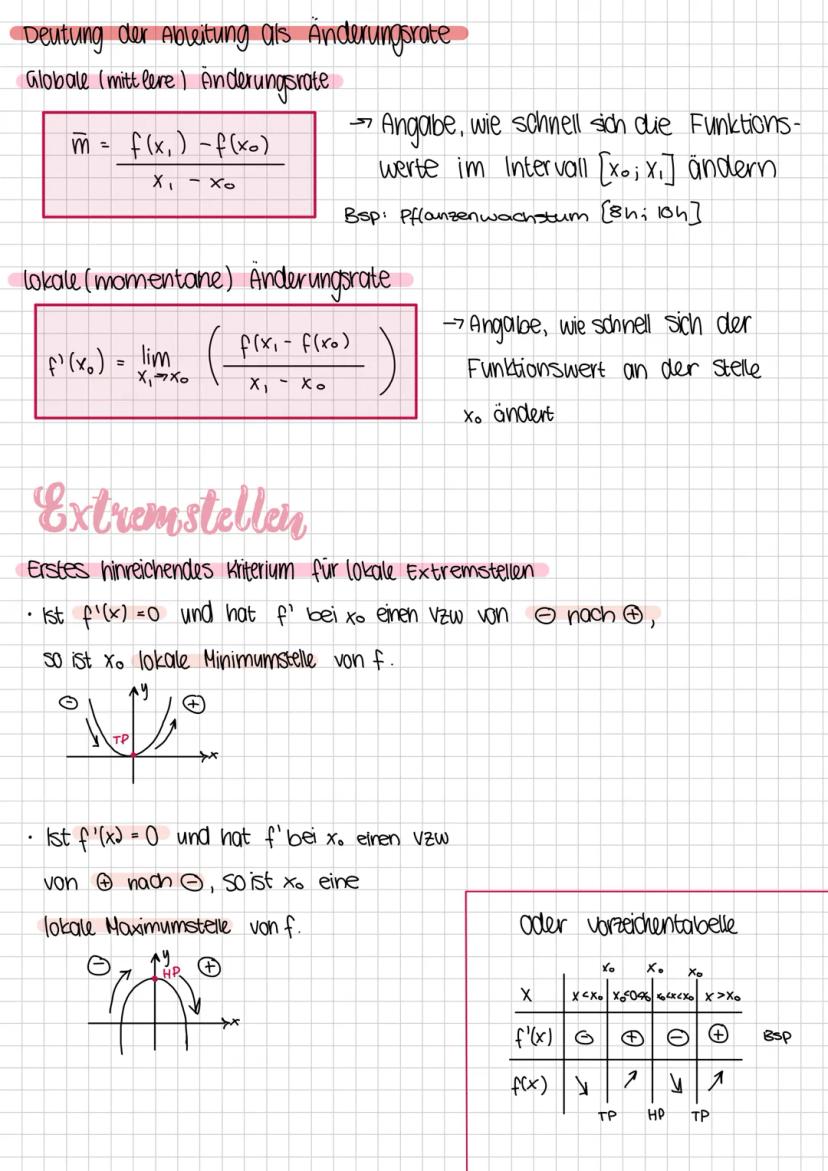 Deutung der Ableitung als Änderungsrate
Globale (mittlere) Änderungsrate
m̄ = f(x₁) - f(x₀) / x₁ - x₀
→ Angabe, wie schnell sich die Funktions-
werte im Intervall [x₀; x₁] ändern
Bsp: Pflanzenwachstum [8h; 10h]
lokale (momentane) Änderungsrate
f'(x₀) = lim x₁→x₀ ( f(x₁ - f(x₀) / x₁ - x₀ )
→ Angabe, wie schnell sich der
Funktionswert an der Stelle
x₀ ändert
Extremstellen
Erstes hinreichendes Kriterium für lokale Extremstellen
· Ist f'(x) = 0 und hat f' bei x₀ einen VZW von ⊖ nach ⊕,
so ist x₀ lokale Minimumstelle von f.
⊖ y ⊕
TP
x
· Ist f'(x) = 0 und hat f' bei x₀ einen VZW
von ⊕ nach ⊖, so ist x₀ eine
lokale Maximumstelle von f.
⊖ y HP ⊕
x
Oder Vorzeichentabelle
x₀ x₀ x₀
x x<x₀ x₀<x<x₀ x>x₀
f'(x) ⊖ ⊕ ⊖ ⊕ BSP
f(x) ↘ ↗ ↘ ↗
TP HP TP